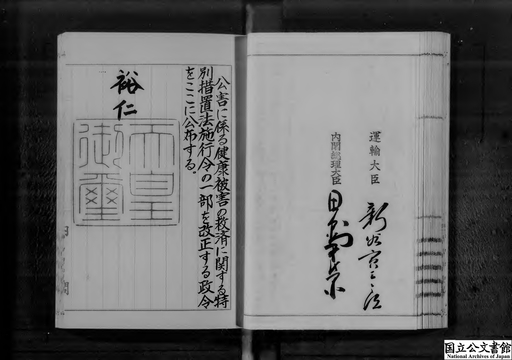 運輸大臣
新谷寅三郎
内閣総理大臣
田中角榮
公害に係る健康被害の救済に関する特
別措置法施行令の一部を改正する政令
をここに公布する。
裕仁
天皇
御璽
国立公文書館
National Archives of Japan